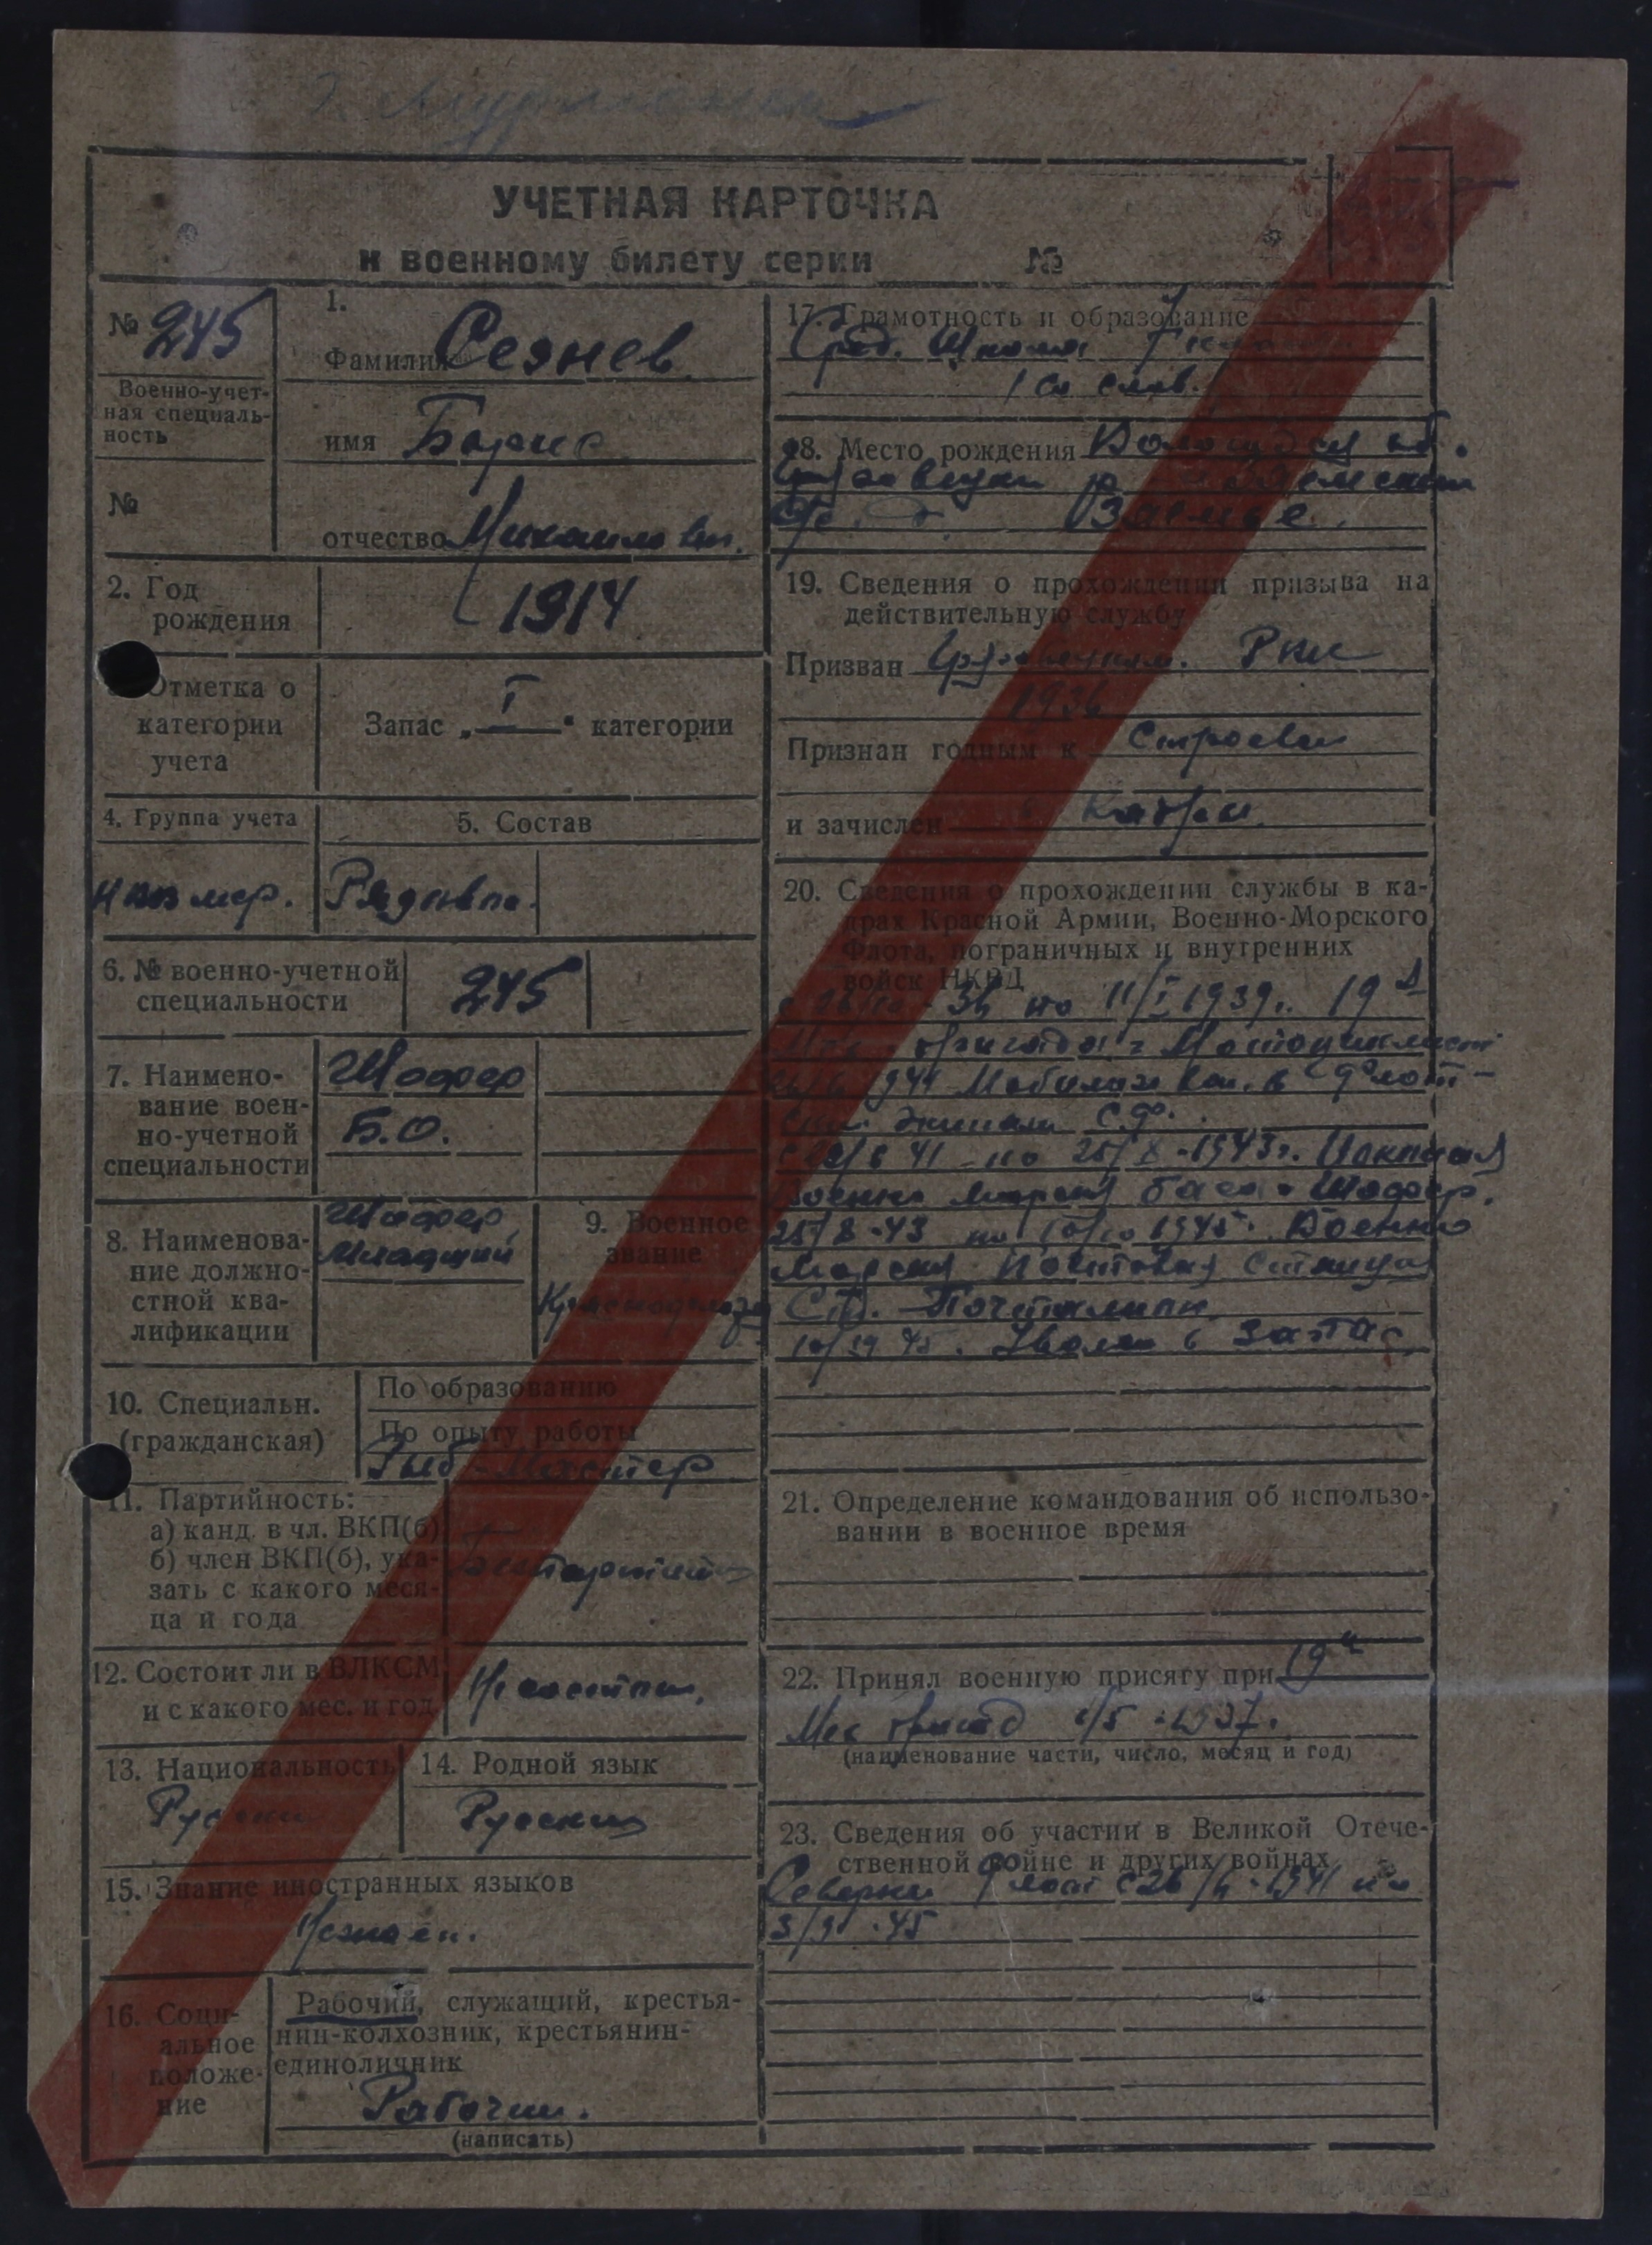 УЧЕТНАЯ КАРТОЧКА
к военному билету серии №
№ 245
Военно-учет-
ная специаль-
ность
№
1.
Фамилия Сезнев
имя Борис
отчество Михайлович.
2. Год
рождения
1914
Отметка о
категории
учета
Запас „ I " категории
4. Группа учета
5. Состав
Рядовой.
6. № военно-учетной
специальности
245
7. Наимено-
вание воен-
но-учетной
специальности
Шофер
Б.О.
8. Наименова-
ние должно-
стной ква-
лификации
Шофер
Младший
9. Военное
звание
Краснофлотец
10. Специальн.
(гражданская)
По образованию
По опыту работы
Рыб-Мастер
11. Партийность:
а) канд. в чл. ВКП(б)
б) член ВКП(б), ука-
зать с какого меся-
ца и года
12. Состоит ли в ВЛКСМ
и с какого мес. и год.
Не состоит.
13. Национальность
Русский
14. Родной язык
Русский
15. Знание иностранных языков
Незнает.
16. Соци-
альное
положе-
ние
Рабочий, служащий, крестья-
нин-колхозник, крестьянин-
единоличник
Рабочий.
(написать)
17. Грамотность и образование
Сред. Школа 7
со слов.
18. Место рождения Вологодская об.
19. Сведения о прохождении призыва на
действительную службу
Призван РВК
1936
Признан годным к Строевой
и зачислен в кадры
20. Сведения о прохождении службы в ка-
драх Красной Армии, Военно-Морского
Флота, пограничных и внутренних
войск НКВД
по 11/I 1939г. 19
бригада Мотоциклист
1941 Мобилизован. в Флот-
ский Экипаж С.Ф.
41 по 25/8-1943г.
Военно Морская база Шофер.
25/8-43 по 10/10 1945. Военно
Морская Почтовая Станция
С.Ф. Почтальон
45. Уволен в запас
21. Определение командования об использо-
вании в военное время
22. Принял военную присягу при 19й
Мех бригад 1/5-1937.
(наименование части, число, месяц и год)
23. Сведения об участии в Великой Отече-
ственной войне и других войнах
Северный Флот с 26/6-1941 по
45